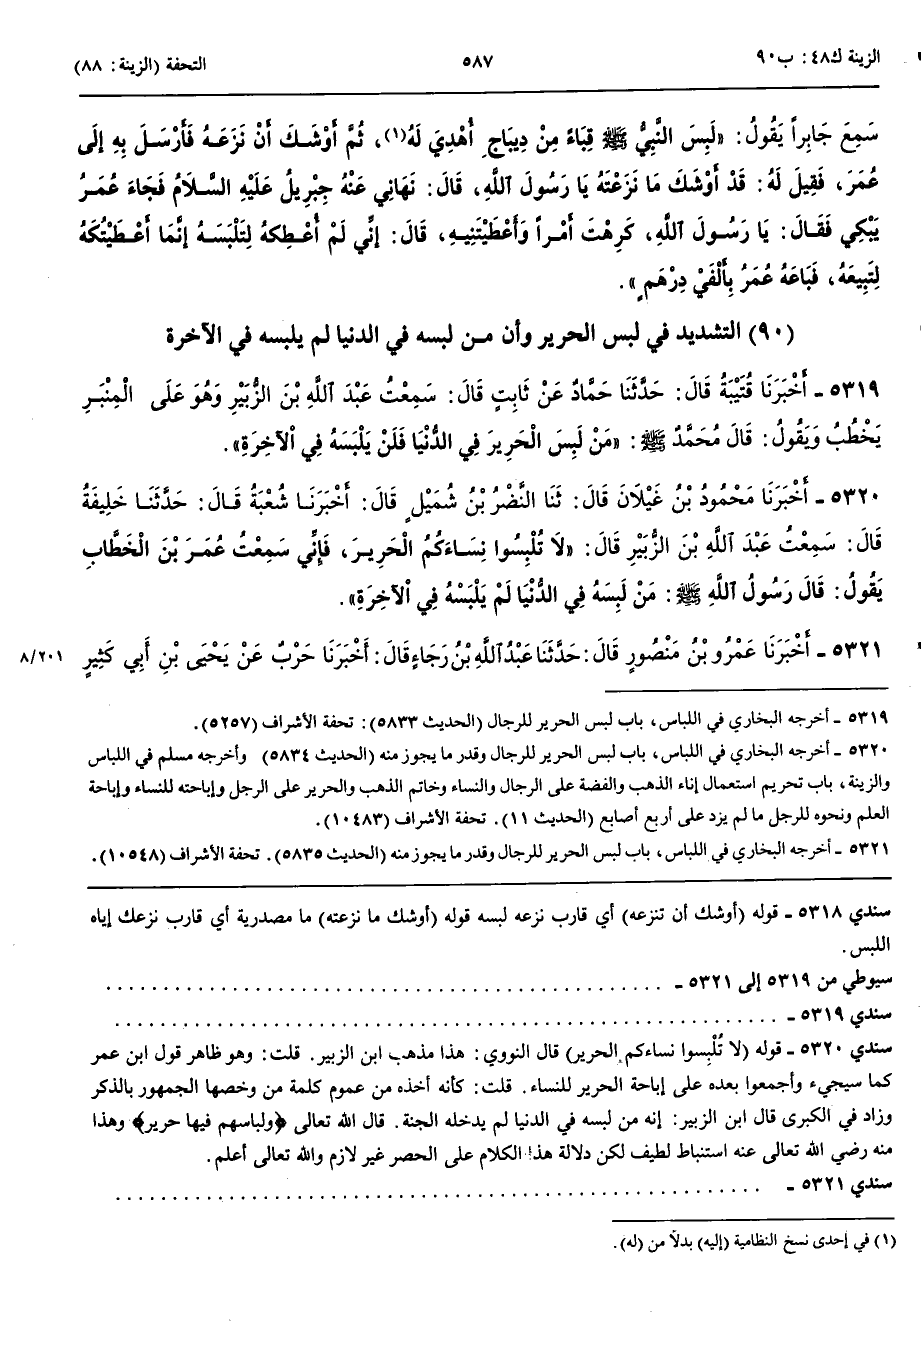 الزينة ك٤٨: ب٩٠
٥٨٧
التحفة (الزينة: ٨٨)
سَمِعَ جَابِراً يَقُولُ: «لَبِسَ النَّبِيُّ ﷺ قِبَاءً مِنْ دِيبَاجٍ أُهْدِيَ لَهُ(١)، ثُمَّ أَوْشَكَ أَنْ نَزَعَهُ فَأَرْسَلَ بِهِ إِلَى
عُمَرَ، فَقِيلَ لَهُ: قَدْ أَوْشَكَ مَا نَزَعْتَهُ يَا رَسُولَ اللَّهِ، قَالَ: نَهَانِي عَنْهُ جِبْرِيلُ عَلَيْهِ السَّلَامُ فَجَاءَ عُمَرُ
يَبْكِي فَقَالَ: يَا رَسُولَ اللَّهِ، كَرِهْتَ أَمْراً وَأَعْطَيْتَنِيهِ، قَالَ: إِنِّي لَمْ أُعْطِكهُ لِتَلْبَسَهُ إِنَّمَا أَعْطَيْتُكَهُ
لِتَبِيعَهُ، فَبَاعَهُ عُمَرُ بِأَلْفَيْ دِرْهَمٍ».
(٩٠) التشديد في لبس الحرير وأن من لبسه في الدنيا لم يلبسه في الآخرة
٥٣١٩ - أَخْبَرَنَا قُتَيْبَةُ قَالَ: حَدَّثَنَا حَمَّادٌ عَنْ ثَابِتٍ قَالَ: سَمِعْتُ عَبْدَ اللَّهِ بْنَ الزُّبَيْرِ وَهُوَ عَلَى الْمِنْبَرِ
يَخْطُبُ وَيَقُولُ: قَالَ مُحَمَّدٌ ﷺ: «مَنْ لَبِسَ الْحَرِيرَ فِي الدُّنْيَا فَلَنْ يَلْبَسَهُ فِي الْآخِرَةِ».
٥٣٢٠ - أَخْبَرَنَا مَحْمُودُ بْنُ غَيْلَانَ قَالَ: ثَنَا النَّضْرُ بْنُ شُمَيْلٍ قَالَ: أَخْبَرَنَا شُعْبَةُ قَالَ: حَدَّثَنَا خَلِيفَةُ
قَالَ: سَمِعْتُ عَبْدَ اللَّهِ بْنَ الزُّبَيْرِ قَالَ: «لَا تُلْبِسُوا نِسَاءَكُمُ الْحَرِيرَ، فَإِنِّي سَمِعْتُ عُمَرَ بْنَ الْخَطَّابِ
يَقُولُ: قَالَ رَسُولُ اللَّهِ ﷺ: مَنْ لَبِسَهُ فِي الدُّنْيَا لَمْ يَلْبَسْهُ فِي الْآخِرَةِ».
٥٣٢١ - أَخْبَرَنَا عَمْرُو بْنُ مَنْصُورٍ قَالَ: حَدَّثَنَا عَبْدُ اللَّهِ بْنُ رَجَاءٍ قَالَ: أَخْبَرَنَا حَرْبٌ عَنْ يَحْيَى بْنِ أَبِي كَثِيرٍ
٨/٢٠١
٥٣١٩ - أخرجه البخاري في اللباس، باب لبس الحرير للرجال (الحديث ٥٨٣٣): تحفة الأشراف (٥٢٥٧).
٥٣٢٠ - أخرجه البخاري في اللباس، باب لبس الحرير للرجال وقدر ما يجوز منه (الحديث ٥٨٣٤) وأخرجه مسلم في اللباس
والزينة، باب تحريم استعمال إناء الذهب والفضة على الرجال والنساء وخاتم الذهب والحرير على الرجل وإباحته للنساء وإباحة
العلم ونحوه للرجل ما لم يزد على أربع أصابع (الحديث ١١). تحفة الأشراف (١٠٤٨٣).
٥٣٢١ - أخرجه البخاري في اللباس، باب لبس الحرير للرجال وقدر ما يجوز منه (الحديث ٥٨٣٥). تحفة الأشراف (١٠٥٤٨).
سندي ٥٣١٨ - قوله (أوشك أن تنزعه) أي قارب نزعه لبسه قوله (أوشك ما نزعته) ما مصدرية أي قارب نزعك إياه
اللبس.
سيوطي من ٥٣١٩ إلى ٥٣٢١ - ........................................
سندي ٥٣١٩ - ........................................
سندي ٥٣٢٠ - قوله (لا تُلْبِسوا نساءكم الحرير) قال النووي: هذا مذهب ابن الزبير. قلت: وهو ظاهر قول ابن عمر
كما سيجيء وأجمعوا بعده على إباحة الحرير للنساء. قلت: كأنه أخذه من عموم كلمة من وخصها الجمهور بالذكر
وزاد في الكبرى قال ابن الزبير: إنه من لبسه في الدنيا لم يدخله الجنة. قال الله تعالى ﴿ولباسهم فيها حرير﴾ وهذا
منه رضي الله تعالى عنه استنباط لطيف لكن دلالة هذا الكلام على الحصر غير لازم والله تعالى أعلم.
سندي ٥٣٢١ - ........................................
(١) في إحدى نسخ النظامية (إليه) بدلًا من (له).